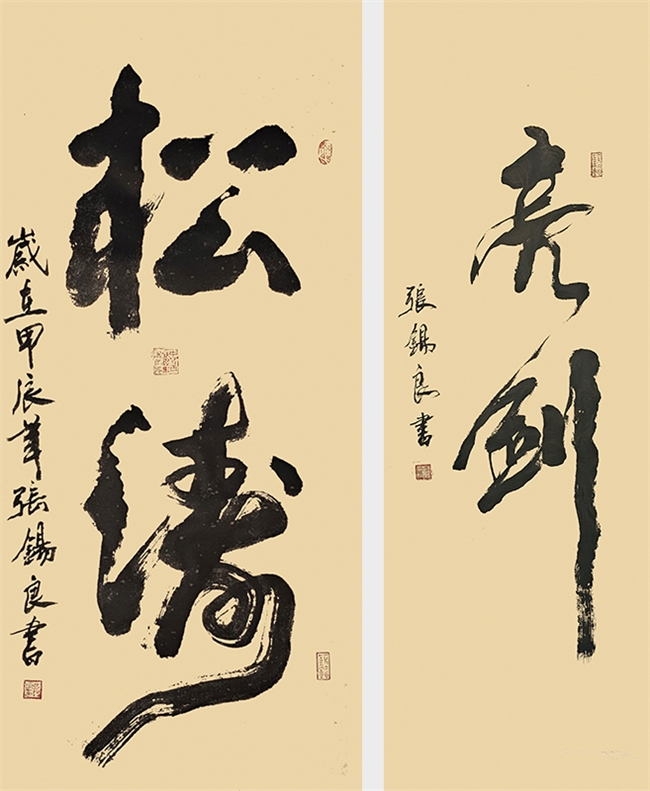 松涛
歲在甲辰年張錫良書
亮剑
張錫良書